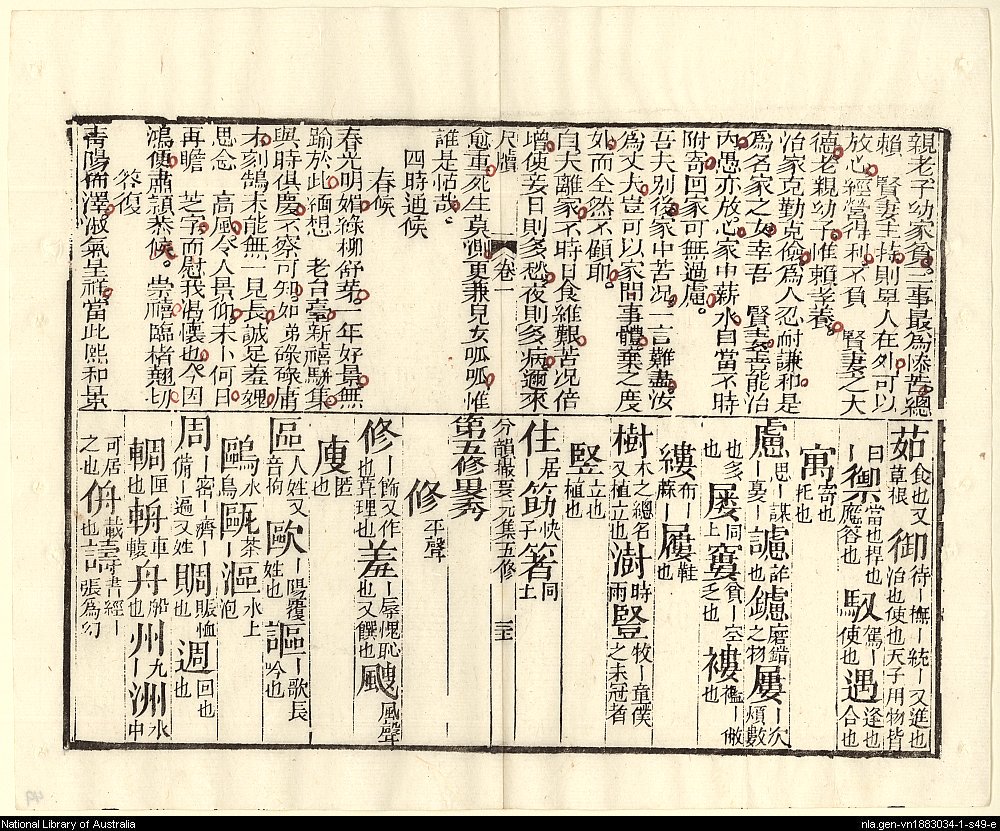 親老子幼家貧。二事最爲慘苦。總
賴 賢妻主持。則卑人在外可以
放心經營得利。不負 賢妻之大
德。老親幼子惟賴孝養。
治家克勤克儉。爲人忍耐謙和。是
爲名家之女。幸吾 賢妻。妻能治
內。愚亦放心。家中薪水。自當不時
附寄回家。可無過慮。
吾夫別後。家中苦况。一言難盡。汝
爲丈夫。豈可以家間事體。棄之度
外。而全然不顧耶。
自夫離家。不時日食維艱。苦况倍
增。使妾日則多愁。夜則多病。邇來
尺牘 卷二
愈重。死生莫測。更兼兒女呱呱。惟
誰是怙哉。
四時通候
春候
春光明媚。綠柳舒芽。一年好景。無
踰於此。緬想 老台臺新禧駢集。
與時俱慶。不察可知。如弟碌碌庸
才。刻鵠未能。無一見長。誠足羞媿。
思念 高風。令人景仰。未卜何日
再瞻 芝宇。而慰我渴懷也。今因
鴻便。肅額恭候。崇禧臨楮翹切。
答復
青陽佈澤。淑氣呈祥。當此熙和景
茹食也又草根 御待ー撫ー統ー又進也治也使也天子用物皆
曰ー 禦當也捍也應答也 馭駕ー使也 遇逢也合也
寓寄也托也
慮思ー謀ー憂ー 謔詐也 鑢磨錯之物 屢ー次煩數
也多也 屢同上 窶貧ー空乏也 褸襤ー敝也
縷布ー蔴ー 屨鞋也
樹木之總名又植立也 澍時雨 豎牧ー童僕之未冠者
竪立也植也
住居ー 筯快子 箸同上
分韻撮要 元集五修 三十
第五修叟秀
修平聲
修ー飾又作也葺理也 羞ー辱愧恥也又饌也 颼颼風聲
廋匿也
區人姓又音拘 歐ー陽覆姓也 謳ー歌長吟也
鷗鳥 甌茶ー 漚水上泡
周ー密ー濟ー備ー遍又姓 賙ー賑恤也 週回也
輖匣 輈車轅也 舟船也 州九ー 洲水中
可居之也 侜載壽書經ー也 譸張爲幻